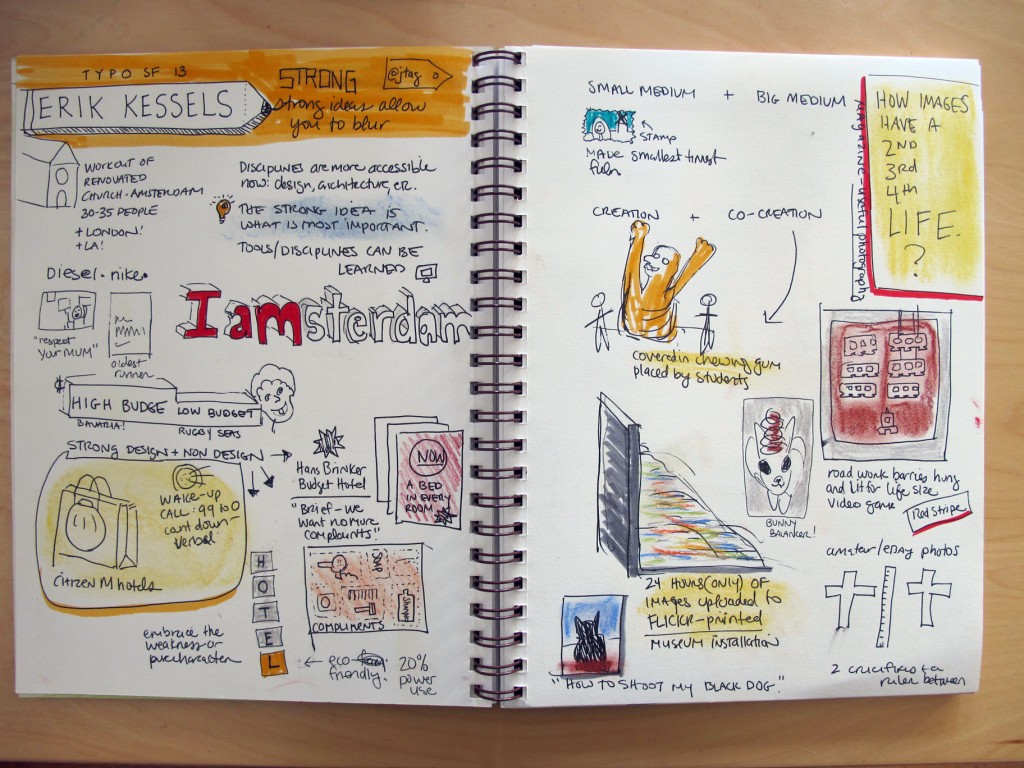 TYPO SF 13
ERIK KESSELS
STRONG
@jtag
strong ideas allow
you to blur
WORK OUT OF
RENOVATED
CHURCH - AMSTERDAM
30-35 PEOPLE
+ LONDON!
+ LA!
DISCIPLINES ARE MORE ACCESSIBLE
NOW: DESIGN, ARCHITECTURE, ER.
THE STRONG IDEA IS
WHAT IS MOST IMPORTANT.
TOOLS/DISCIPLINES CAN BE
LEARNED
Diesel. nike.
"respect
your MUM"
oldest
runner
I amsterdam
$
HIGH BUDGE
LOW BUDGET
BAVARIA!
RUGBY SEAS
STRONG DESIGN + NON DESIGN
WAKE-UP
CALL: 99 to 0
count down-
verbal
CITIZEN M hotels
Hans Brinker
Budget Hotel
"Brief - we
want no more
complaints"
NOW
A BED
IN EVERY
ROOM
SOAP
COMPLIMENTS
HOTEL
embrace the
weakness or
pure character
eco-
friendly!
20%
power
use
SMALL MEDIUM + BIG MEDIUM
STAMP
MADE smallest
film
magazine - useful photography
HOW IMAGES
HAVE A
2ND
3rd
4th
LIFE.
?
CREATION + CO-CREATION
covered in chewing gum
placed by students
BUNNY
BALANCER!
road work barries hung
and lit for life size
video game
Red Stripe
24 HOURS (ONLY) OF
IMAGES uploaded to
FLICKR - printed
MUSEUM INSTALLATION
amateur/EBAY PHOTOS
"HOW TO SHOOT MY BLACK DOG."
2 crucifixes + a
ruler between